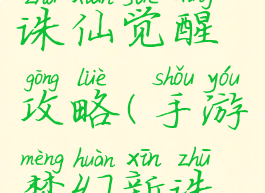 zhū xiān jué xǐng
诛仙觉醒
gōng lüè shǒu yóu
攻略(手游
mèng huàn xīn zhū
梦幻新诛